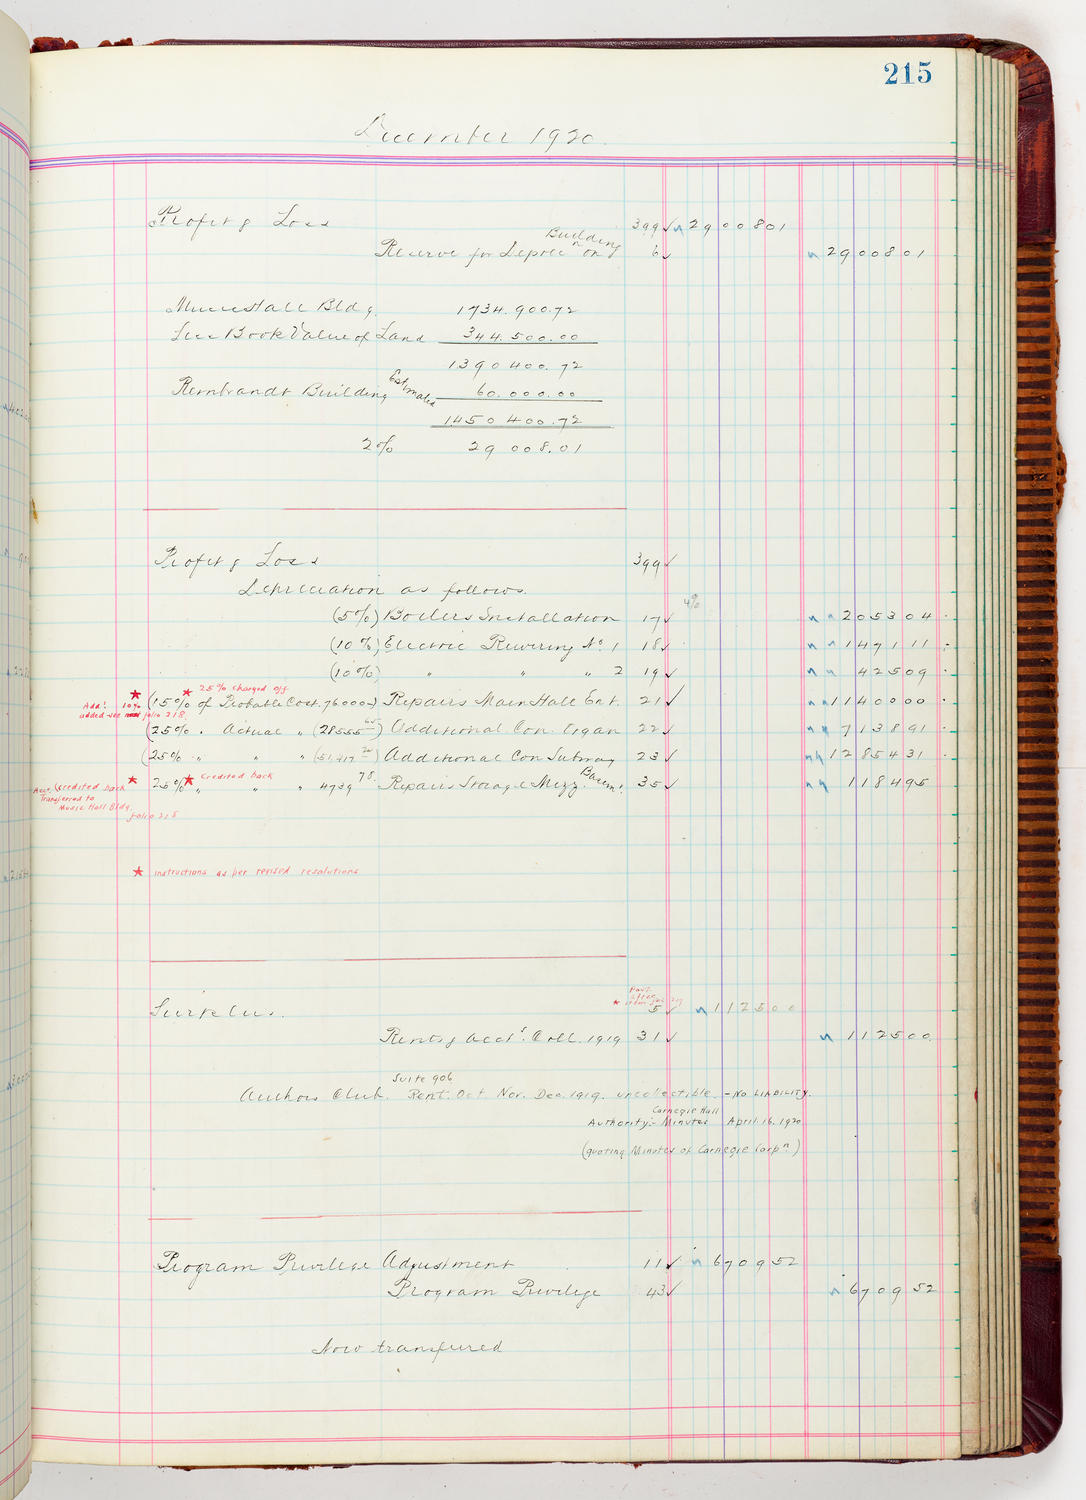 215
December 1920.
Profit & Loss 399 ✓ 29 008 01
Building
Reserve for Depreciation 6 ✓ 29 008 01
Music Hall Bldg. 1734.900.72
Less Book Value of Land 344.500.00
1390 400.72
Rembrandt Building Estimated 60.000.00
1450 400.72
2% 29 008.01
Profit & Loss 399 ✓
Depreciation as follows.
4%
(5%) Boilers Installation 17 ✓ 2053 04
(10%) Electric Rewiring No. 1 18 ✓ 1471 11
(10%) " " " 2 19 ✓ 425 09
★ ★ 25% charged off
Add'l. 10% (15% of Probable Cost. 76000.) Repairs Main Hall Ent. 21 ✓ 11400 00
added - see folio 218
(25% . Actual " (28555 65) Additional. Con. Organ 22 ✓ 7138 91
(25% " " " (51,417 20) Additional Con Subway 23 ✓ 12854 31
★ ★ Credited back
25% " " " 4739 78. Repairs Storage Mezz. Basem't 35 ✓ 1184 95
Acct. Credited back
Transferred to
Music Hall Bldg.
folio 218
★ instructions as per revised resolutions
Surplus. 5 ✓ 1125 00
Rents & Acct's. Coll. 1919 31 ✓ 1125 00
Suite 906
Authors Club. Rent. Oct Nov. Dec. 1919. uncollectible - No LIABILITY.
Carnegie Hall
Authority:- Minutes April. 16. 1920
(quoting Minutes of Carnegie Corpn.)
Program Privilege Adjustment 11 ✓ 6709 52
Program Privilege 43 ✓ 6709 52
Now transferred